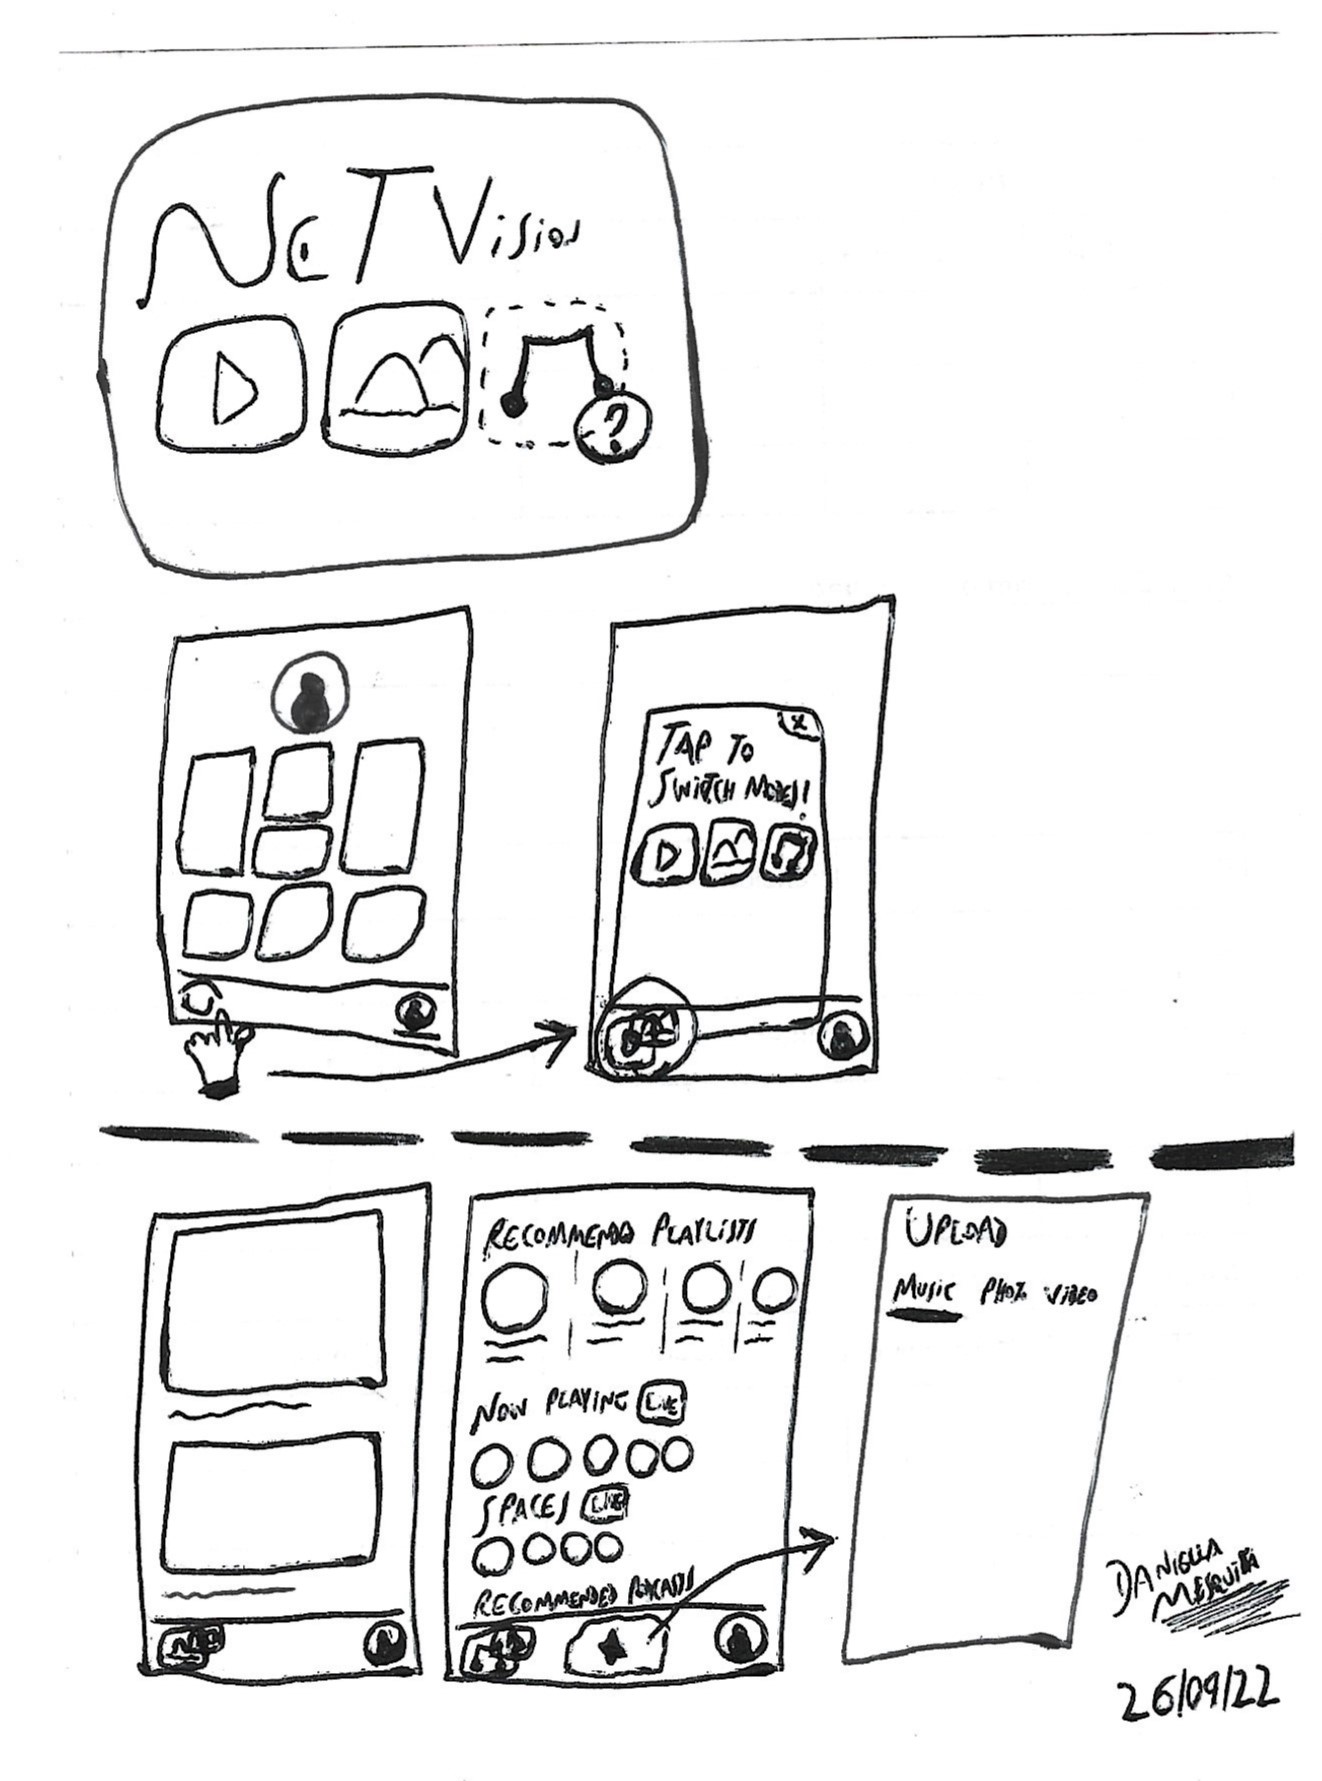 NeTVision
?
TAP TO
SWITCH MODES!
X
RECOMMENDED PLAYLISTS
NOW PLAYING LIVE
SPACES LIVE
RECOMMENDED PODCASTS
UPLOAD
MUSIC PHOTO VIDEO
DANIELLA
MESQUITA
26/09/22